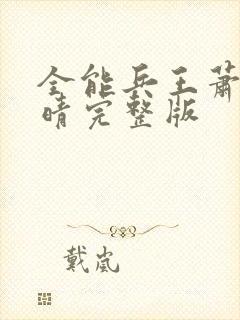 全能兵王萧
晴完整版
戴岚